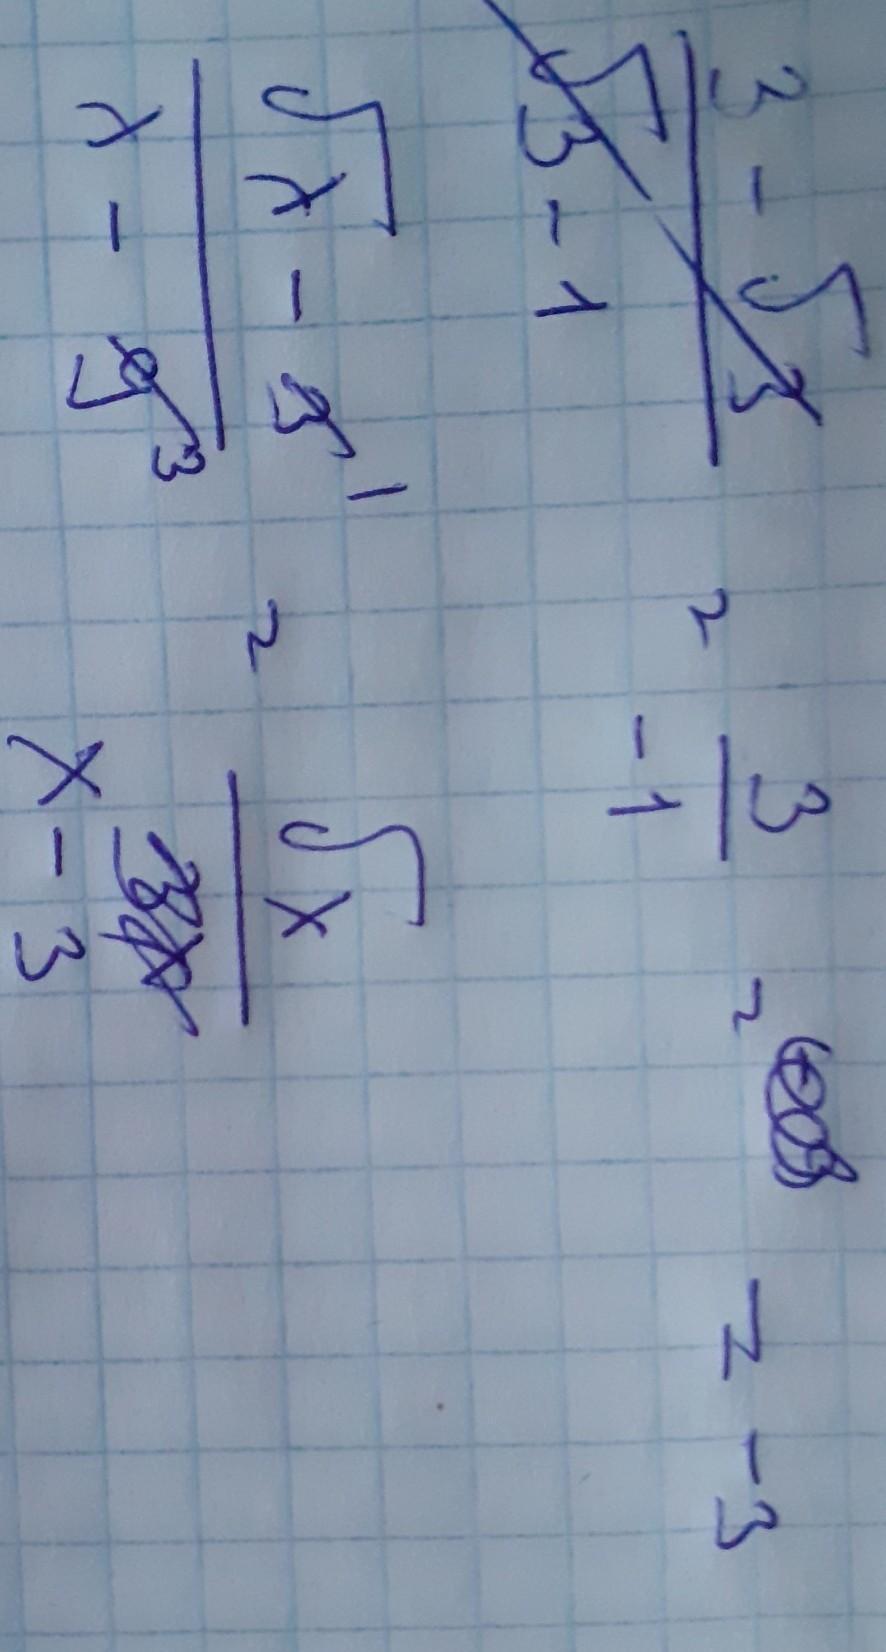 3 - √3 / √3 - 1 = 3 / -1 = = -3
√x - 3 ¹ / x - 9 ³ = √x / x - 3